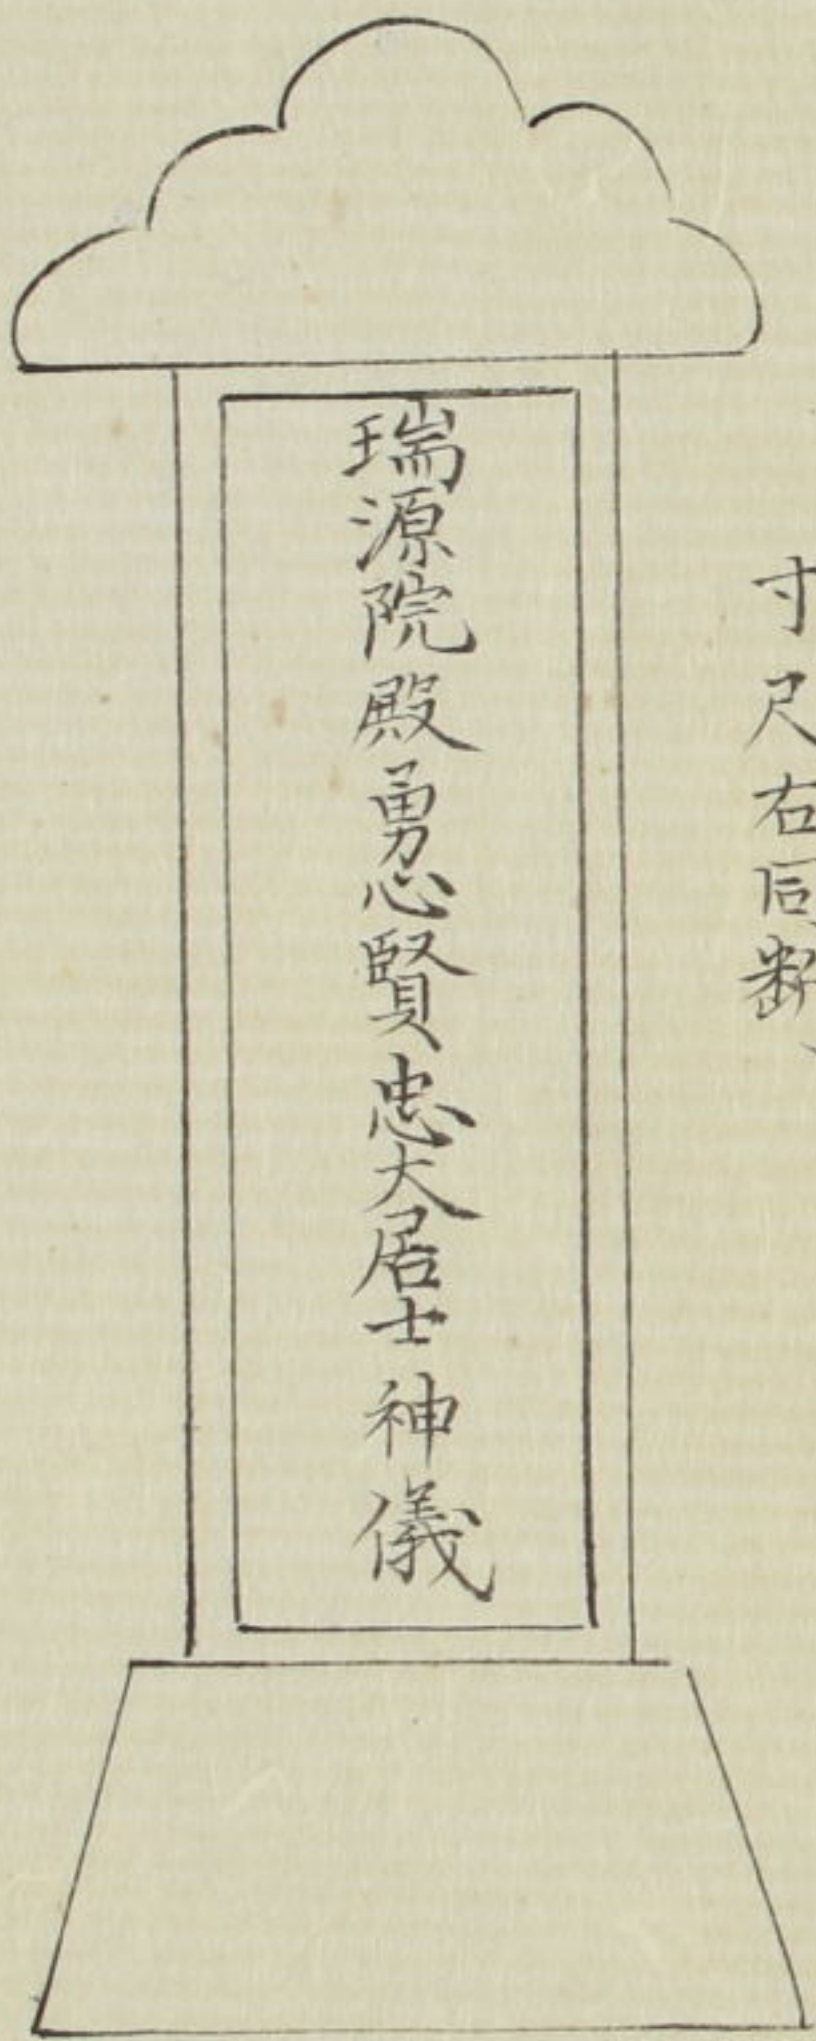 寸尺右同断、
瑞源院殿勇心賢忠大居士神儀